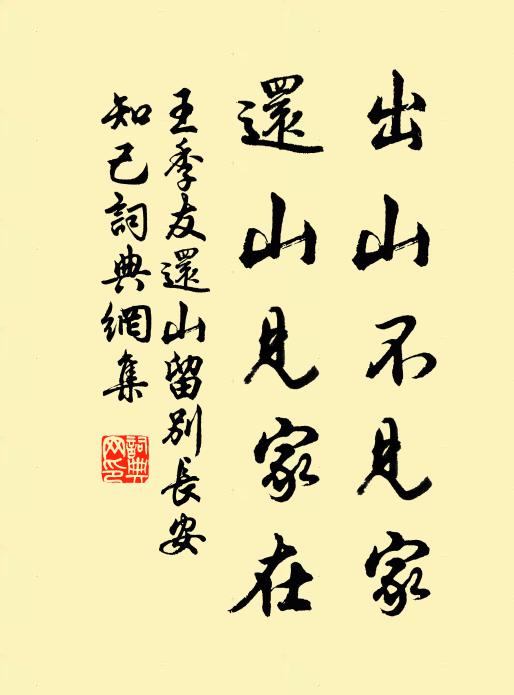 出山不見家
還山見家在
王季友還山留別長安
知己詞典網集
詞典
网印